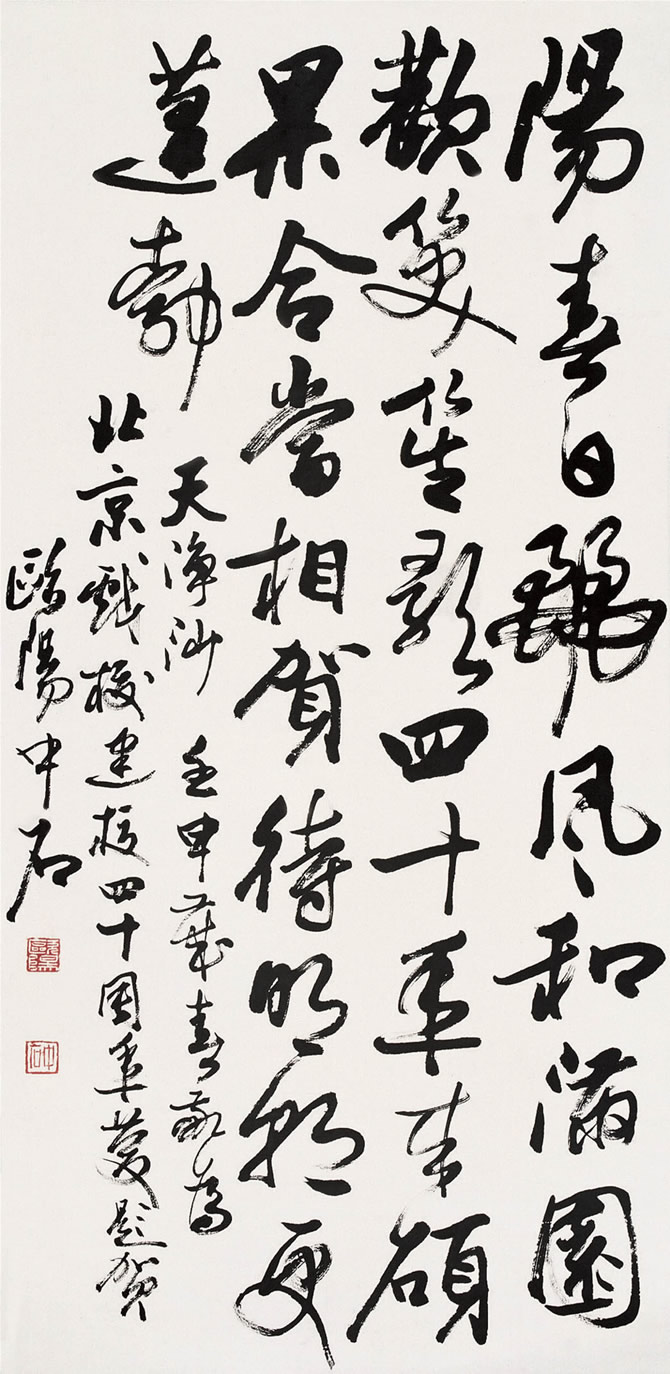 陽春日麗風和滿園
歡笑笙歌四十年來碩
果合當相賀待明朝更
蓬勃
天淨沙 壬申歲春敬為
北京戲校建校四十周年慶題賀
歐陽中石
歐陽
中石